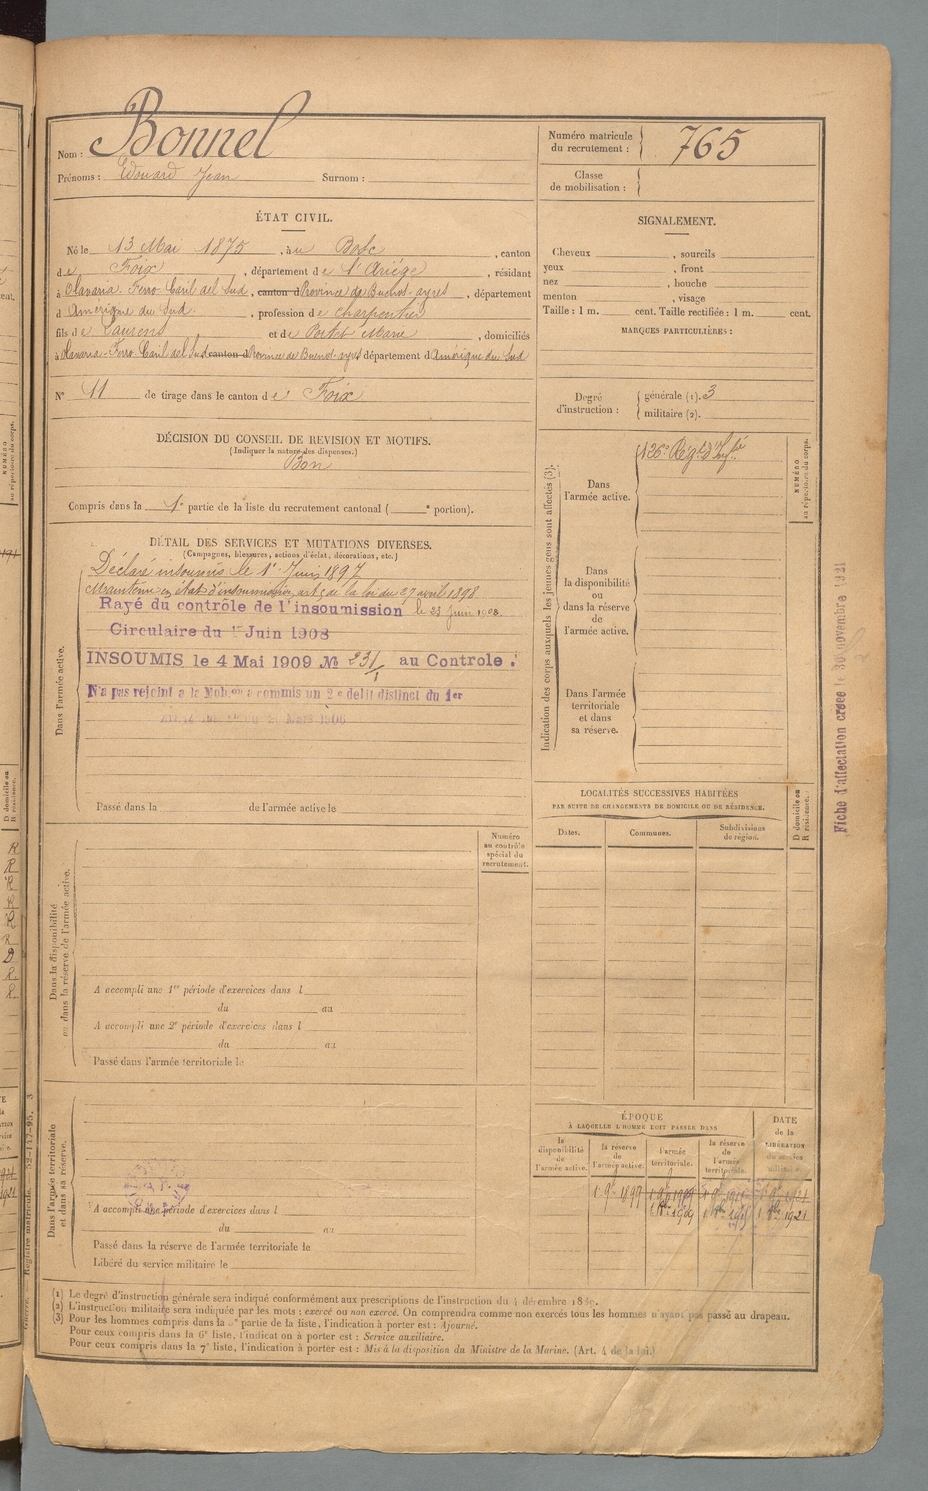 Nom : Bonnel
Prénoms : Edouard Jean Surnom :
Numéro matricule du recrutement : 765
Classe de mobilisation :
ÉTAT CIVIL.
Né le 13 Mai 1875, à u Bosc, canton
de Foix, département de l'Ariège, résidant
à Olavaria. Ferro Caril del Sud, canton d Province de Buenos ayres, département
d Amérique du Sud, profession de charpentier
fils de Laurens et de Portet Marie, domiciliés
à Olavaria. Ferro Caril del Sud canton d Province de Buenos ayres département d Amérique du Sud
N° 11 de tirage dans le canton de Foix
SIGNALEMENT.
Cheveux , sourcils
yeux , front
nez , bouche
menton , visage
Taille : 1 m. cent. Taille rectifiée : 1 m. cent.
MARQUES PARTICULIÈRES :
Degré d'instruction : générale (1). 3
militaire (2).
DÉCISION DU CONSEIL DE REVISION ET MOTIFS.
(Indiquer la nature des dispenses.)
Bon
Compris dans la 1e partie de la liste du recrutement cantonal ( e portion).
DÉTAIL DES SERVICES ET MUTATIONS DIVERSES.
(Campagnes, blessures, actions d'éclat, décorations, etc.)
Dans l'armée active.
Déclaré insoumis le 1er Juin 1897
Maintenu en état d'insoumission, art. 5 de la loi du 27 avril 1898
Rayé du contrôle de l'insoumission le 23 Juin 1908.
Circulaire du 1er Juin 1908
INSOUMIS le 4 Mai 1909 № 231/1 au Controle :
N'a pas rejoint a la Mobon a commis un 2e delit distinct du 1er
Mars 1906
Passé dans la de l'armée active le
Indication des corps auxquels les jeunes gens sont affectés (3).
NUMÉRO au répertoire du corps.
Dans l'armée active.
126e Régt d'Infie
Dans la disponibilité ou dans la réserve de l'armée active.
Dans l'armée territoriale et dans sa réserve.
Fiche d'affectation créee le 30 novembre 1921
LOCALITÉS SUCCESSIVES HABITÉES
PAR SUITE DE CHANGEMENTS DE DOMICILE OU DE RÉSIDENCE.
Dates. Communes. Subdivisions de région. D domicile ou R résidence.
Numéro au contrôle spécial du recrutement.
Dans la disponibilité ou dans la réserve de l'armée active.
A accompli une 1re période d'exercices dans l
du au
A accompli une 2e période d'exercices dans l
du au
Passé dans l'armée territoriale le
Dans l'armée territoriale et dans sa réserve.
A accompli une période d'exercices dans l
du au
Passé dans la réserve de l'armée territoriale le
Libéré du service militaire le
ÉPOQUE
À LAQUELLE L'HOMME DOIT PASSER DANS
DATE de la LIBÉRATION du service militaire.
la disponibilité de l'armée active. la réserve de l'armée active. l'armée territoriale. la réserve de l'armée territoriale.
1 9bre 1899
1 8bre 1909 1 8bre 1915 1 8bre 1921
(1) Le degré d'instruction générale sera indiqué conformément aux prescriptions de l'instruction du 4 décembre 1889.
(2) L'instruction militaire sera indiquée par les mots : exercé ou non exercé. On comprendra comme non exercés tous les hommes n'ayant pas passé au drapeau.
(3) Pour les hommes compris dans la 5e partie de la liste, l'indication à porter est : Ajourné.
Pour ceux compris dans la 6e liste, l'indication à porter est : Service auxiliaire.
Pour ceux compris dans la 7e liste, l'indication à porter est : Mis à la disposition du Ministre de la Marine. (Art. 4 de la loi.)